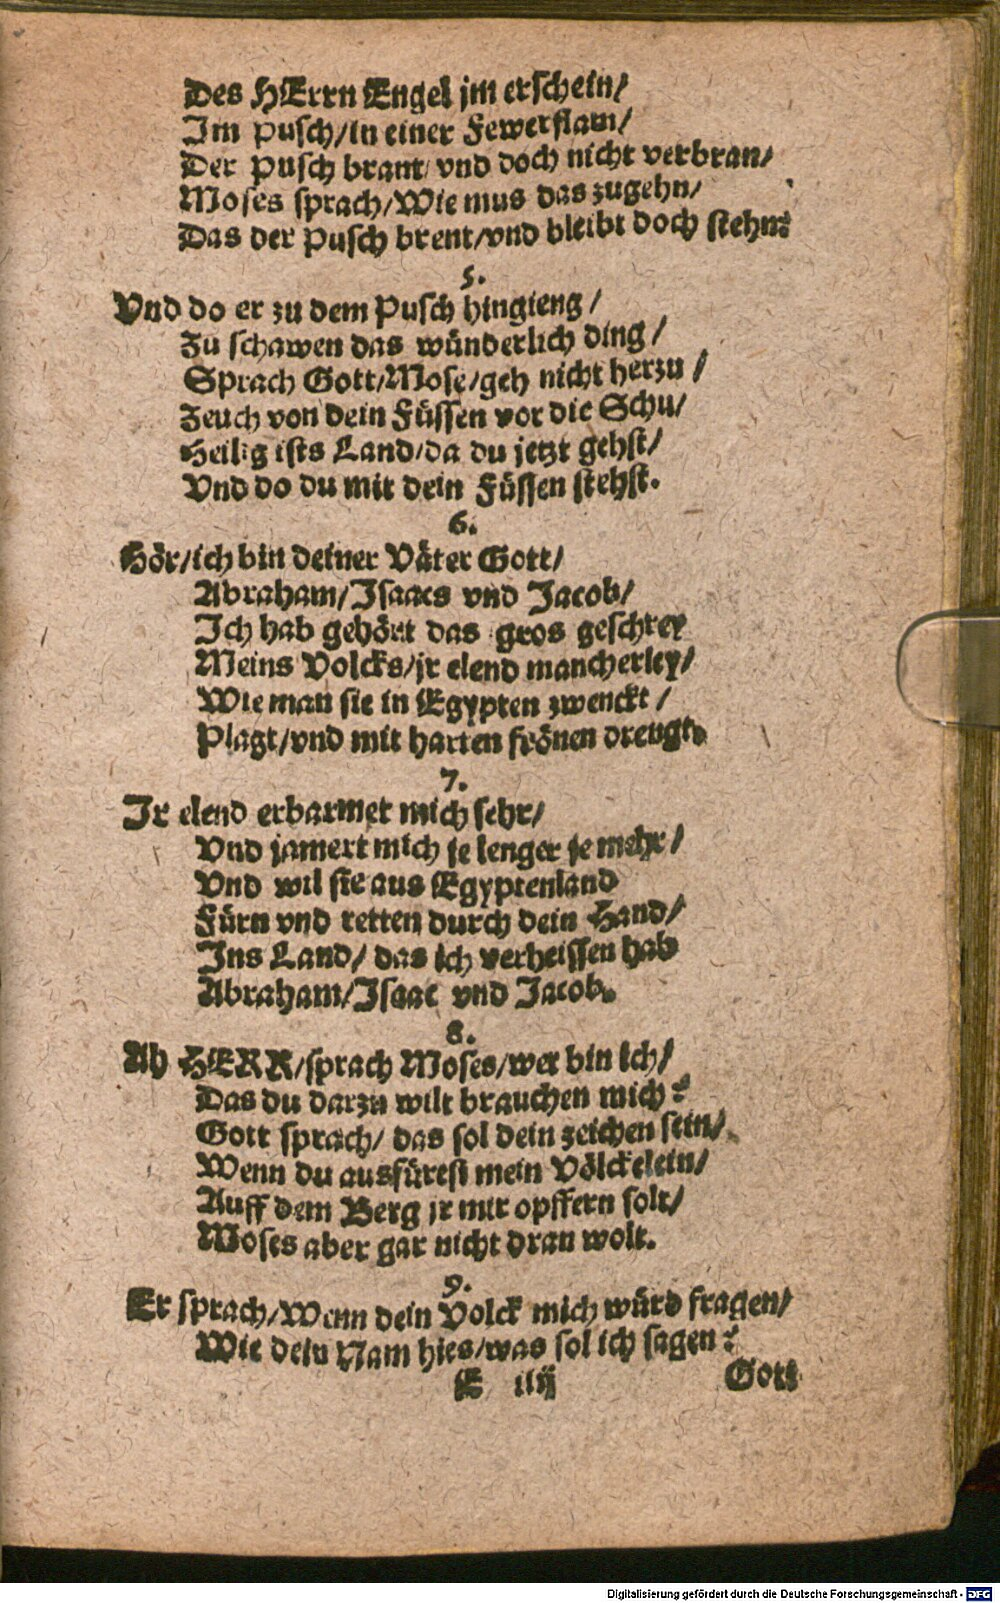 Des HErrn Engel jm erschein/
Im Pusch/in einer Fewerflam/
Der Pusch brant/vnd doch nicht verbran/
Moses sprach/Wie mus das zugehn/
Das der Pusch brent/vnd bleibt doch stehn?
5.
Vnd do er zu dem Pusch hingieng/
Zu schawen das wünderlich ding/
Sprach Gott/Mose/geh nicht herzu/
Zeuch von dein Füssen vor die Schu/
Heilig ists Land/da du jetzt gehst/
Vnd do du mit dein Füssen stehst.
6.
Hör/ich bin deiner Väter Gott/
Abraham/Isaacs vnd Jacob/
Ich hab gehört das gros geschrey
Meins Volcks/jr elend mancherley/
Wie man sie in Egypten zwenckt/
Plagt/vnd mit harten frönen drengt.
7.
Ir elend erbarmet mich sehr/
Vnd jamert mich je lenger je mehr/
Vnd wil sie aus Egyptenland
Fürn vnd retten durch dein Hand/
Ins Land/das ich verheissen hab
Abraham/Isaac vnd Jacob.
8.
Ah HERR/sprach Moses/wer bin ich/
Das du darzu wilt brauchen mich?
Gott sprach/das sol dein zeichen sein/
Wenn du ausfürest mein Völckelein/
Auff dem Berg jr mir opffern solt/
Moses aber gar nicht dran wolt.
9.
Er sprach/Wenn dein Volck mich würd fragen/
Wie dein Nam hies/was sol ich sagen?
E iiij
Gott
Digitalisierung gefördert durch die Deutsche Forschungsgemeinschaft - DFG